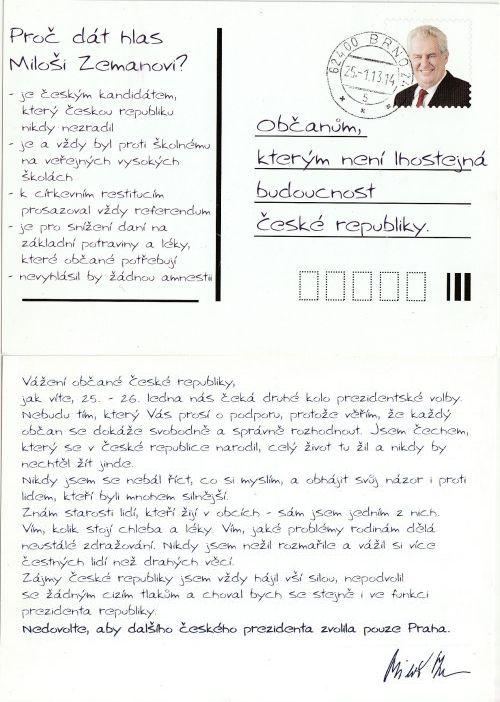 Proč dát hlas
Miloši Zemanovi?
- je českým kandidátem,
který českou republiku
nikdy nezradil
- je a vždy byl proti školnému
na veřejných vysokých
školách
- k církevním restitucím
prosazoval vždy referendum
- je pro snížení daní na
základní potraviny a léky,
které občané potřebují
- nevyhlásil by žádnou amnestii
624 00 BRNO 24
25.-1.13.14
s
Občanům,
kterým není lhostejná
budoucnost
české republiky.
Vážení občané České republiky,
jak víte, 25. - 26. ledna nás čeká druhé kolo prezidentské volby.
Nebudu tím, který Vás prosí o podporu, protože věřím, že každý
občan se dokáže svobodně a správně rozhodnout. Jsem Čechem,
který se v České republice narodil, celý život tu žil a nikdy by
nechtěl žít jinde.
Nikdy jsem se nebál říct, co si myslím, a obhájit svůj názor i proti
lidem, kteří byli mnohem silnější.
Znám starosti lidí, kteří žijí v obcích - sám jsem jedním z nich.
Vím, kolik stojí chleba a léky. Vím, jaké problémy rodinám dělá
neustálé zdražování. Nikdy jsem nežil rozmařile a vážil si více
čestných lidí než drahých věcí.
Zájmy České republiky jsem vždy hájil vší silou, nepodvolil
se žádným cizím tlakům a choval bych se stejně i ve funkci
prezidenta republiky.
Nedovolte, aby dalšího českého prezidenta zvolila pouze Praha.